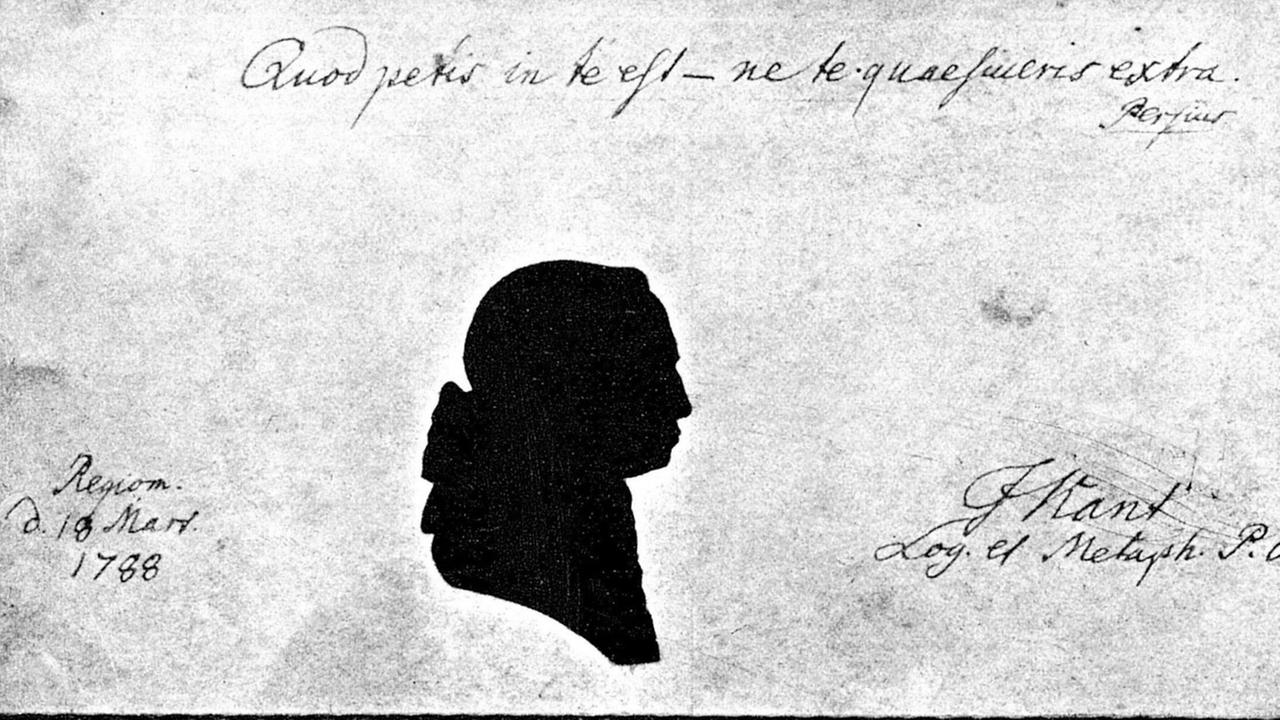 Quod petis in te est – ne te quaesiveris extra.
Persius
Regiom.
d. 18 Mart.
1788
I Kant
Log. et Metaph. P.